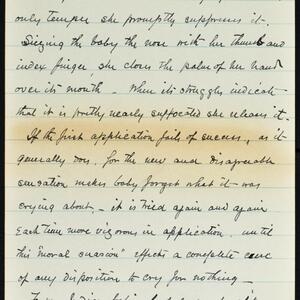 only temper she promptly suppresses it.
Siezing the baby the nose with her thumb and
index finger, she closes the palm of her hand
over its mouth. When its struggles indicate
that it is pretty nearly suffocated she releases it.
If the first application fails of success, as it
generally does, for the new and disagreeable
sensation makes baby forget what it was
crying about - it is tried again and again
each time more vigorous in application, until
this "moral suasion" effects a complete cure
of any disposition to cry for nothing -